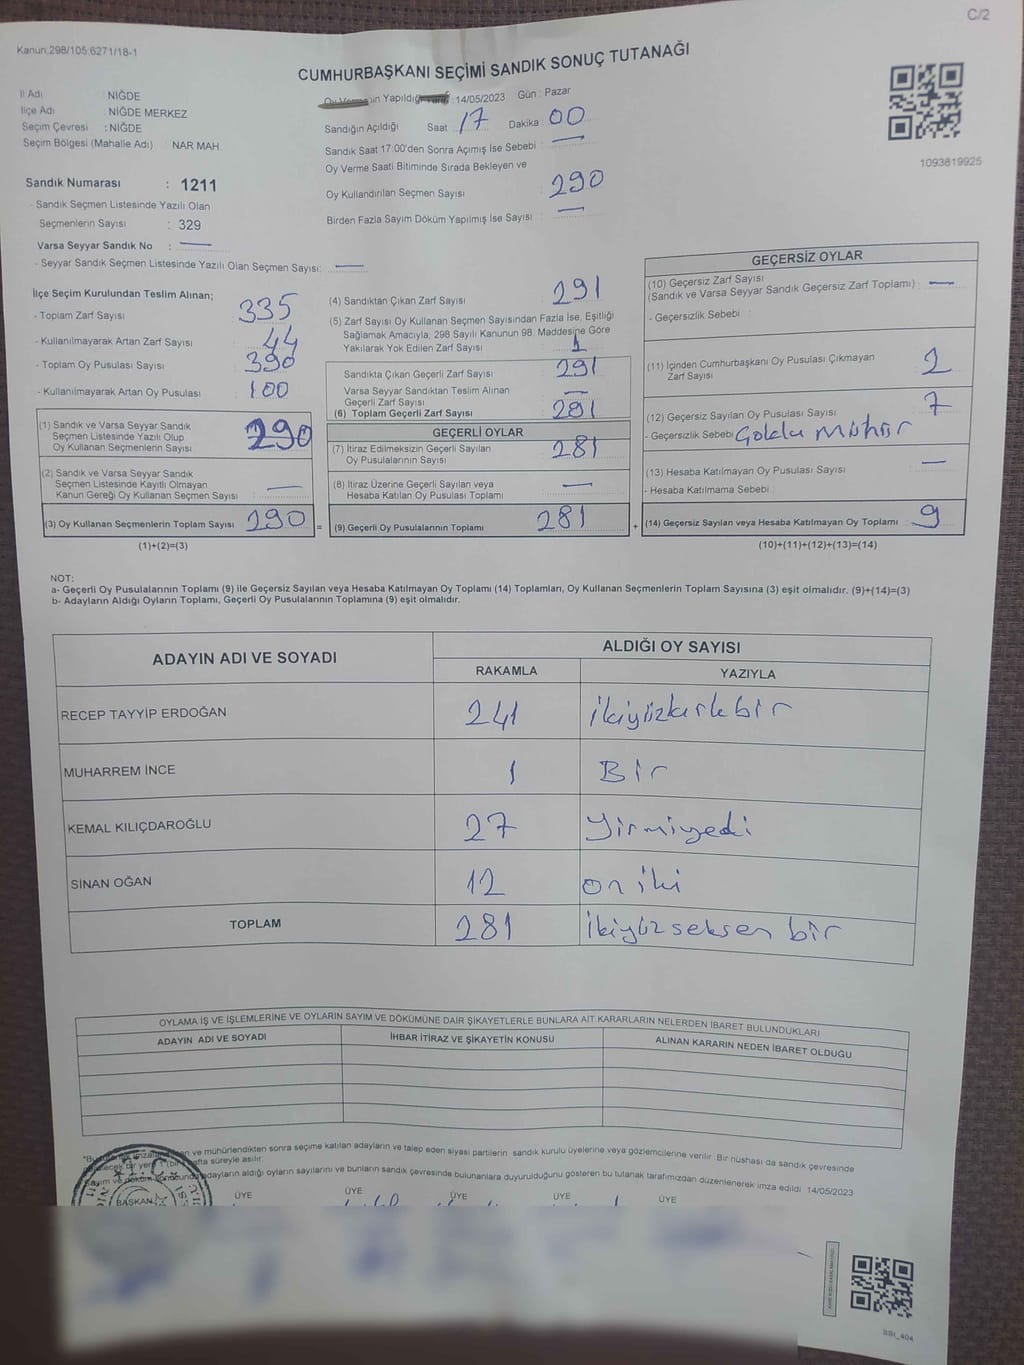 C/2
Kanun:298/105:6271/18-1
CUMHURBAŞKANI SEÇİMİ SANDIK SONUÇ TUTANAĞI
İl Adı : NİĞDE
İlçe Adı : NİĞDE MERKEZ
Seçim Çevresi : NİĞDE
Seçim Bölgesi (Mahalle Adı) : NAR MAH.
Yapıldığı 14/05/2023 Gün : Pazar
Sandığın Açıldığı Saat 17 Dakika 00
Sandık Saat 17:00'den Sonra Açımış İse Sebebi : —
Oy Verme Saati Bitiminde Sırada Bekleyen ve
Oy Kullandırılan Seçmen Sayısı : 290
Birden Fazla Sayım Döküm Yapılmış İse Sayısı : —
1093819925
Sandık Numarası : 1211
- Sandık Seçmen Listesinde Yazılı Olan
Seçmenlerin Sayısı : 329
Varsa Seyyar Sandık No : —
- Seyyar Sandık Seçmen Listesinde Yazılı Olan Seçmen Sayısı: —
İlçe Seçim Kurulundan Teslim Alınan;
- Toplam Zarf Sayısı : 335
- Kullanılmayarak Artan Zarf Sayısı : 44
- Toplam Oy Pusulası Sayısı : 390
- Kullanılmayarak Artan Oy Pusulası : 100
(1) Sandık ve Varsa Seyyar Sandık
Seçmen Listesinde Yazılı Olup
Oy Kullanan Seçmenlerin Sayısı : 290
(2) Sandık ve Varsa Seyyar Sandık
Seçmen Listesinde Kayıtlı Olmayan
Kanun Gereği Oy Kullanan Seçmen Sayısı : —
(3) Oy Kullanan Seçmenlerin Toplam Sayısı 290 =
(1)+(2)=(3)
(4) Sandıktan Çıkan Zarf Sayısı : 291
(5) Zarf Sayısı Oy Kullanan Seçmen Sayısından Fazla İse, Eşitliği
Sağlamak Amacıyla; 298 Sayılı Kanunun 98. Maddesine Göre
Yakılarak Yok Edilen Zarf Sayısı : 1
Sandıkta Çıkan Geçerli Zarf Sayısı : 291
Varsa Seyyar Sandıktan Teslim Alınan
Geçerli Zarf Sayısı : —
(6) Toplam Geçerli Zarf Sayısı : 281
GEÇERLİ OYLAR
(7) İtiraz Edilmeksizin Geçerli Sayılan
Oy Pusulalarının Sayısı : 281
(8) İtiraz Üzerine Geçerli Sayılan veya
Hesaba Katılan Oy Pusulası Toplamı : —
(9) Geçerli Oy Pusulalarının Toplamı : 281 +
GEÇERSİZ OYLAR
(10) Geçersiz Zarf Sayısı
(Sandık ve Varsa Seyyar Sandık Geçersiz Zarf Toplamı) : —
- Geçersizlik Sebebi :
(11) İçinden Cumhurbaşkanı Oy Pusulası Çıkmayan
Zarf Sayısı : 2
(12) Geçersiz Sayılan Oy Pusulası Sayısı : 7
- Geçersizlik Sebebi
(13) Hesaba Katılmayan Oy Pusulası Sayısı : —
- Hesaba Katılmama Sebebi :
(14) Geçersiz Sayılan veya Hesaba Katılmayan Oy Toplamı : 9
(10)+(11)+(12)+(13)=(14)
NOT:
a- Geçerli Oy Pusulalarının Toplamı (9) ile Geçersiz Sayılan veya Hesaba Katılmayan Oy Toplamı (14) Toplamları, Oy Kullanan Seçmenlerin Toplam Sayısına (3) eşit olmalıdır. (9)+(14)=(3)
b- Adayların Aldığı Oyların Toplamı, Geçerli Oy Pusulalarının Toplamına (9) eşit olmalıdır.
ADAYIN ADI VE SOYADI ALDIĞI OY SAYISI
RAKAMLA YAZIYLA
RECEP TAYYİP ERDOĞAN 241 ikiyüzkırkbir
MUHARREM İNCE 1 Bir
KEMAL KILIÇDAROĞLU 27 Yirmiyedi
SİNAN OĞAN 12 on iki
TOPLAM 281 ikiyüzseksen bir
OYLAMA İŞ VE İŞLEMLERİNE VE OYLARIN SAYIM VE DÖKÜMÜNE DAİR ŞİKAYETLERLE BUNLARA AİT KARARLARIN NELERDEN İBARET BULUNDUKLARI
ADAYIN ADI VE SOYADI İHBAR İTİRAZ VE ŞİKAYETİN KONUSU ALINAN KARARIN NEDEN İBARET OLDUĞU
ve mühürlendikten sonra seçime katılan adayların ve talep eden siyasi partilerin sandık kurulu üyelerine veya gözlemcilerine verilir. Bir nüshası da sandık çevresinde
bir yere 1 (bir) hafta süreyle asılır.
adayların aldığı oyların sayılarını ve bunların sandık çevresinde bulunanlara duyurulduğunu gösteren bu tutanak tarafımızdan düzenlenerek imza edildi 14/05/2023
BAŞKAN ÜYE ÜYE ÜYE ÜYE ÜYE